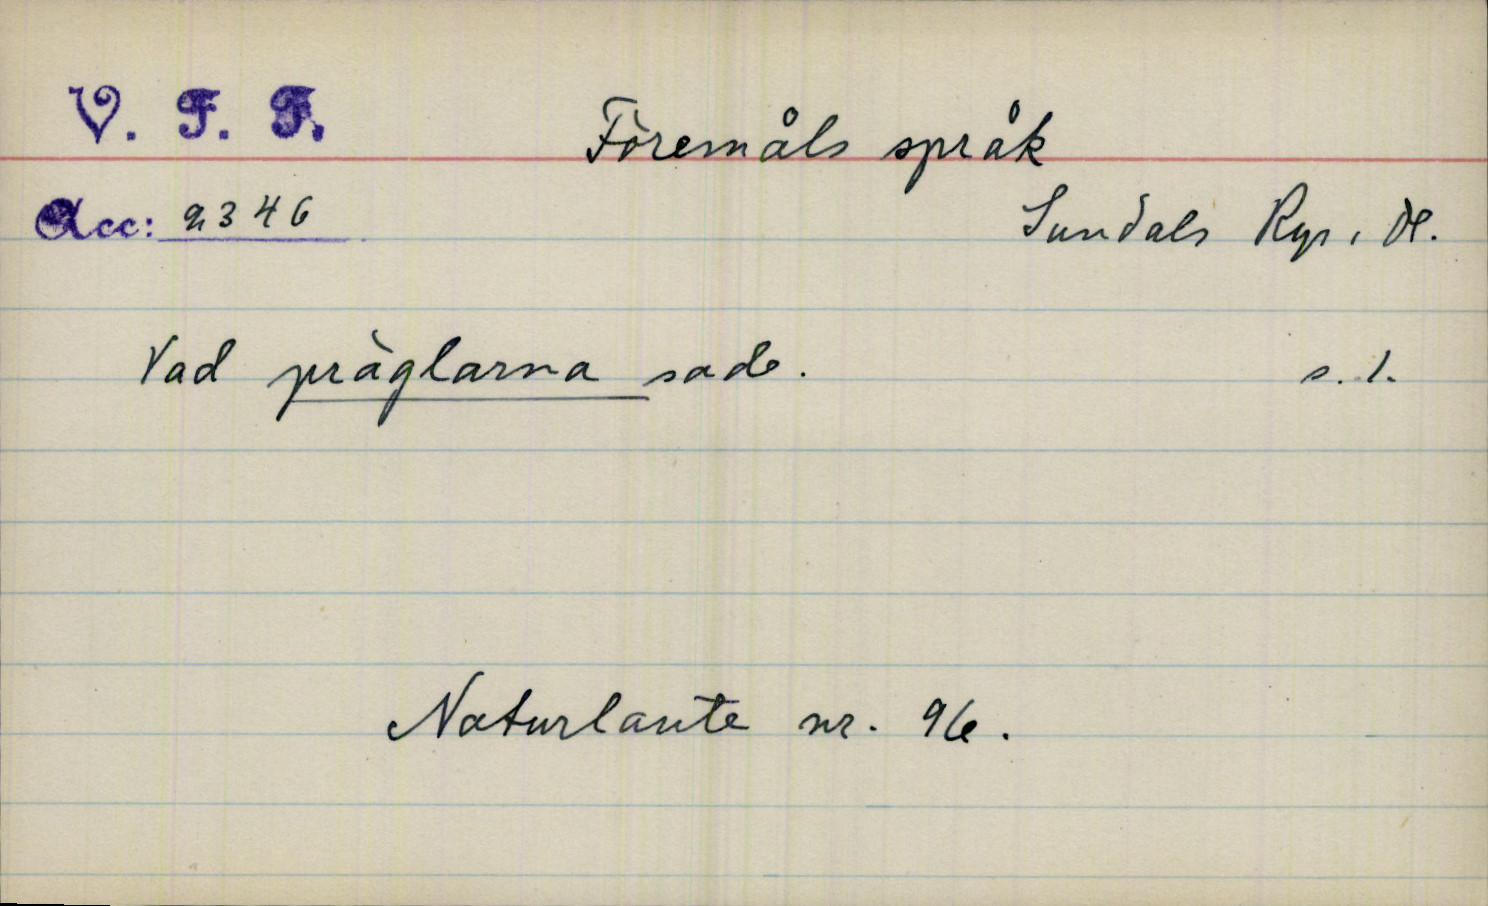 V. F. F.
Föremåls språk
Acc: 2346
Sundals Ryr, Dl.
Vad präglarna sade. s. 1.
Naturlaute nr. 96.